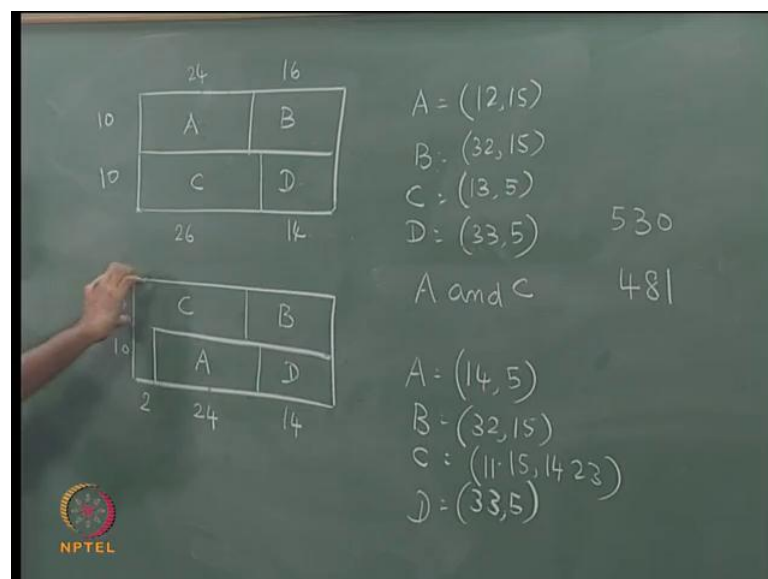 24 16
10 A B
10 C D
26 14
A = (12,15)
B = (32,15)
C = (13,5)
D = (33,5) 530
A and C 481
C B
10 A D
2 24 14
A = (14,5)
B = (32,15)
C = (11.15, 14 23)
D = (33,5)
NPTEL